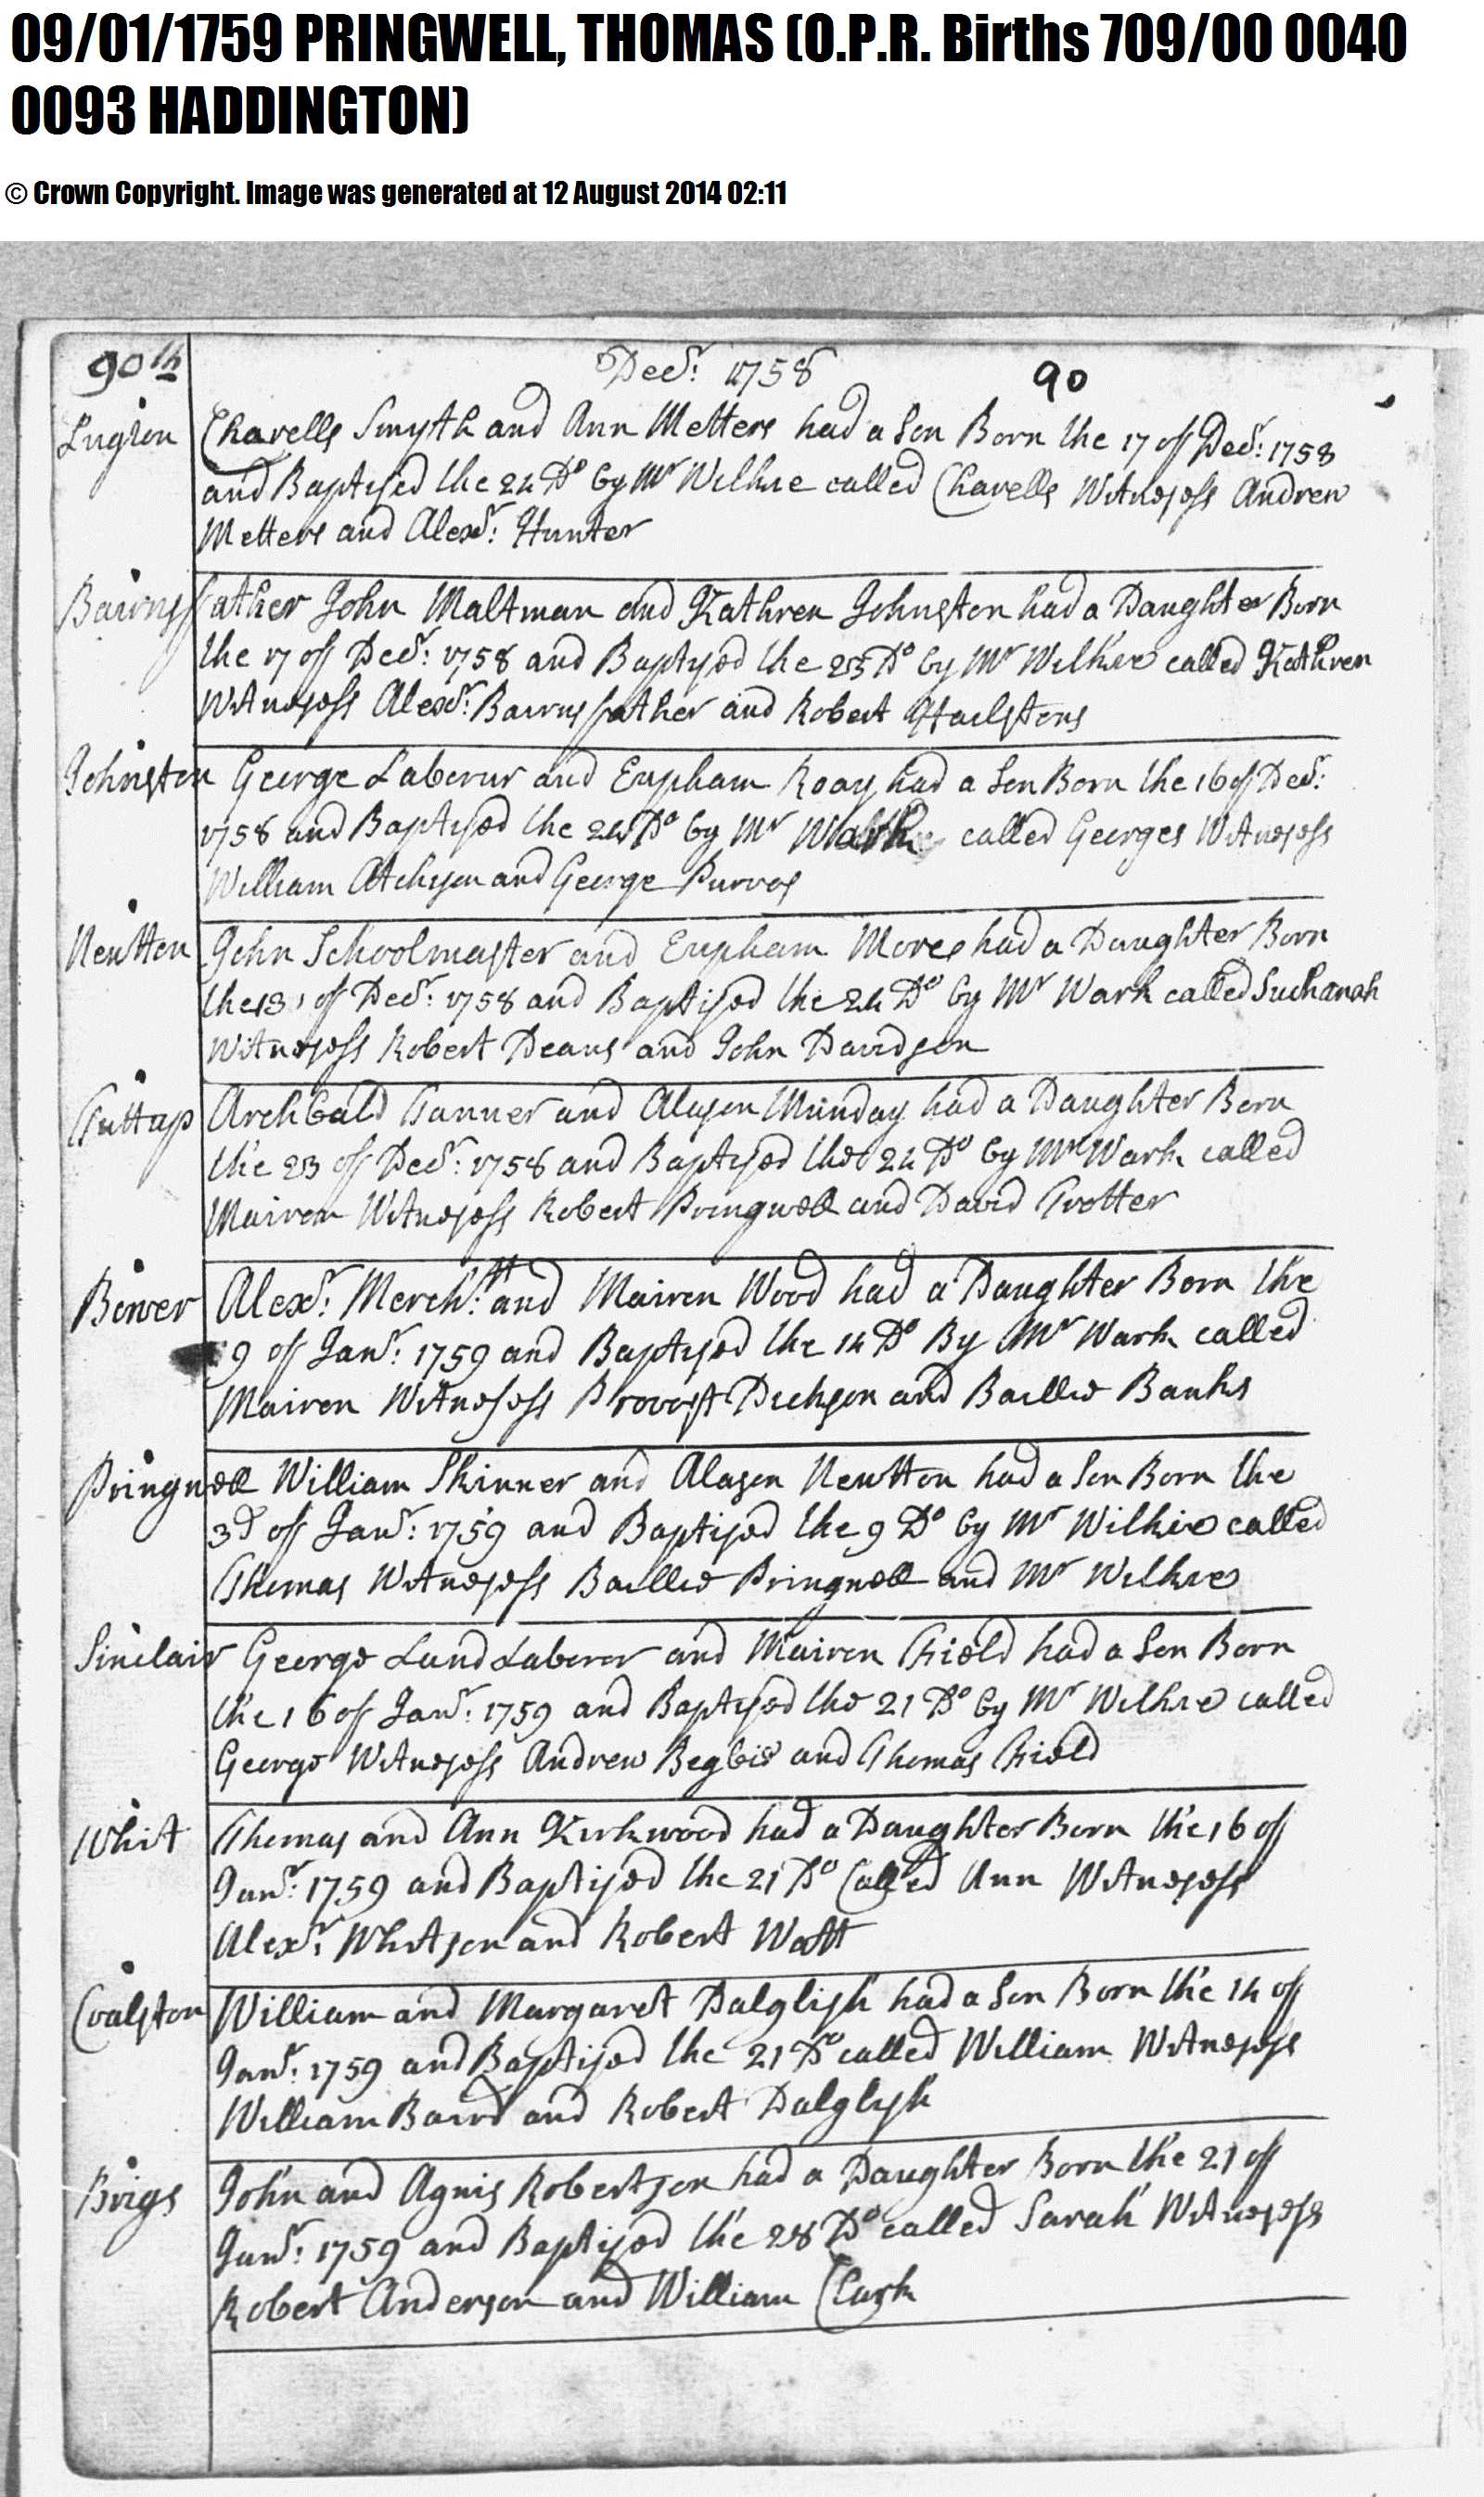 09/01/1759 PRINGWELL, THOMAS (O.P.R. Births 709/00 0040
0093 HADDINGTON)
© Crown Copyright. Image was generated at 12 August 2014 02:11
90th Decr: 1758 90
Lugton Charells Smyth and Ann Metters had a Son Born the 17 off Decr: 1758
and Baptised the 24 Do by Mr Wilkie called Charells Witnesess Andrew
Metters and Alexr: Hunter
Bairnsfather John Maltman and Kathren Johnston had a Daughter Born
the 17 off Decr: 1758 and Baptysed the 25 Do by Mr Wilkie called Kathren
Witnesess Alexr: Bairnsfather and Robert Hailstens
Johnston George Laberur and Eupham Roay had a Son Born the 16 off Decr:
1758 and Baptysed the 24 Do by Mr called Georges Witnesess
William Atchyson and George Purves
Newtton John Schoolmaster and Eupham More had a Daughter Born
the 13 off Decr: 1758 and Baptised the 24 Do by Mr Wark called Suchanah
Witnesess Robert Deans and John Davidson
Guttap Archbald Tanner and Alason Munday had a Daughter Born
the 23 off Decr: 1758 and Baptysed the 24 Do by Mr Wark called
Mairon Witnesess Robert Pringwell and David Trotter
Bower Alexr: Mercht: and Mairen Wood had a Daughter Born the
9 off Janr: 1759 and Baptysed the 14 Do By Mr Wark called
Mairon Witnesess Provost Dickson and Baillie Banks
Pringwell William Skinner and Alason Newtton had a Son Born the
3d off Janr: 1759 and Baptised the 9 Do by Mr Wilkie called
Thomas Witnesess Baillie Pringwell and Mr Wilkie
Sinclair George Land Laberer and Mairen Shield had a Son Born
the 16 off Janr: 1759 and Baptysed the 21 Do by Mr Wilkie called
George Witnesess Andrew Begbie and Thomas Shield
Whit Thomas and Ann Kirkwood had a Daughter Born the 16 off
Janr: 1759 and Baptised the 21 Do Called Ann Witnesess
Alexr: Whitson and Robert Watt
Coalston William and Margaret Dalglish had a Son Born the 14 off
Janr: 1759 and Baptised the 21 Do called William Witnesess
William Baird and Robert Dalglish
Brigs John and Agnis Robertson had a Daughter Born the 21 off
Janr: 1759 and Baptised the 28 Do called Sarah Witnesess
Robert Anderson and William Clark